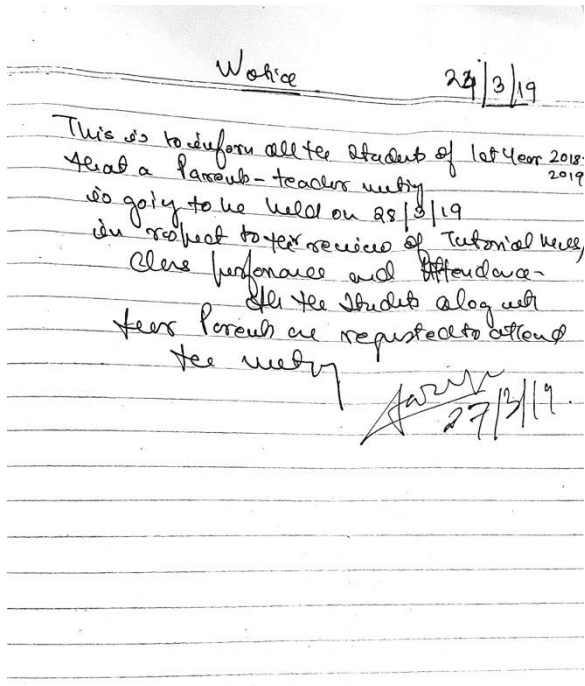 Notice
24/3/19
This is to inform all the students of 1st Year 2018-2019
that a Parents-teacher meeting
is going to be held on 28/3/19
in respect to their review of Tutorial
Class performance and Attendance-
All the students along with
their Parents are requested to attend
the meeting
27/3/19.